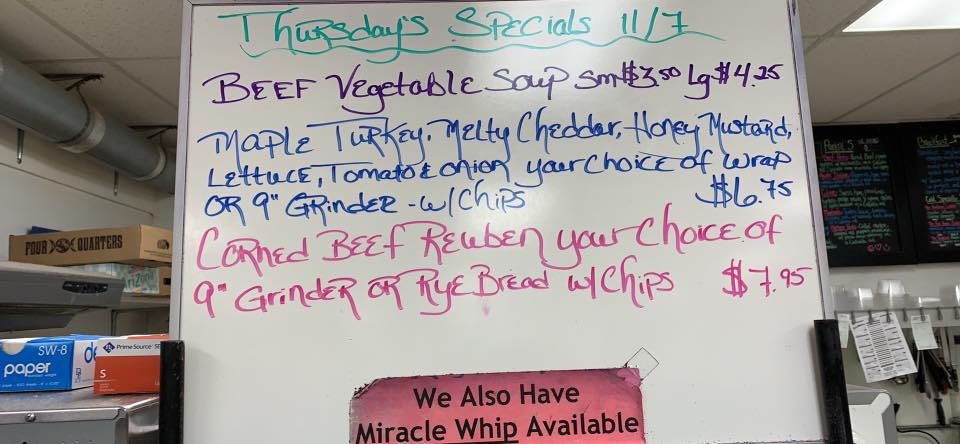 Thursday's Specials 11/7
Beef Vegetable Soup sm $3.50 Lg $4.25
Maple Turkey, Melty Cheddar, Honey Mustard,
Lettuce, Tomato & onion your choice of wrap
OR 9" Grinder - w/ Chips $6.75
Corned Beef Reuben your choice of
9" Grinder OR Rye Bread w/ Chips $7.95
We Also Have
Miracle Whip Available
FOUR QUARTERS
SW-8
paper
Prime Source
S